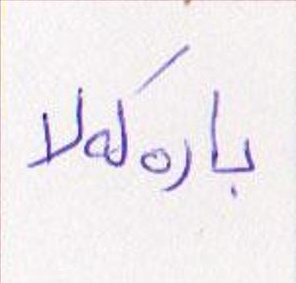 بارەكەلا